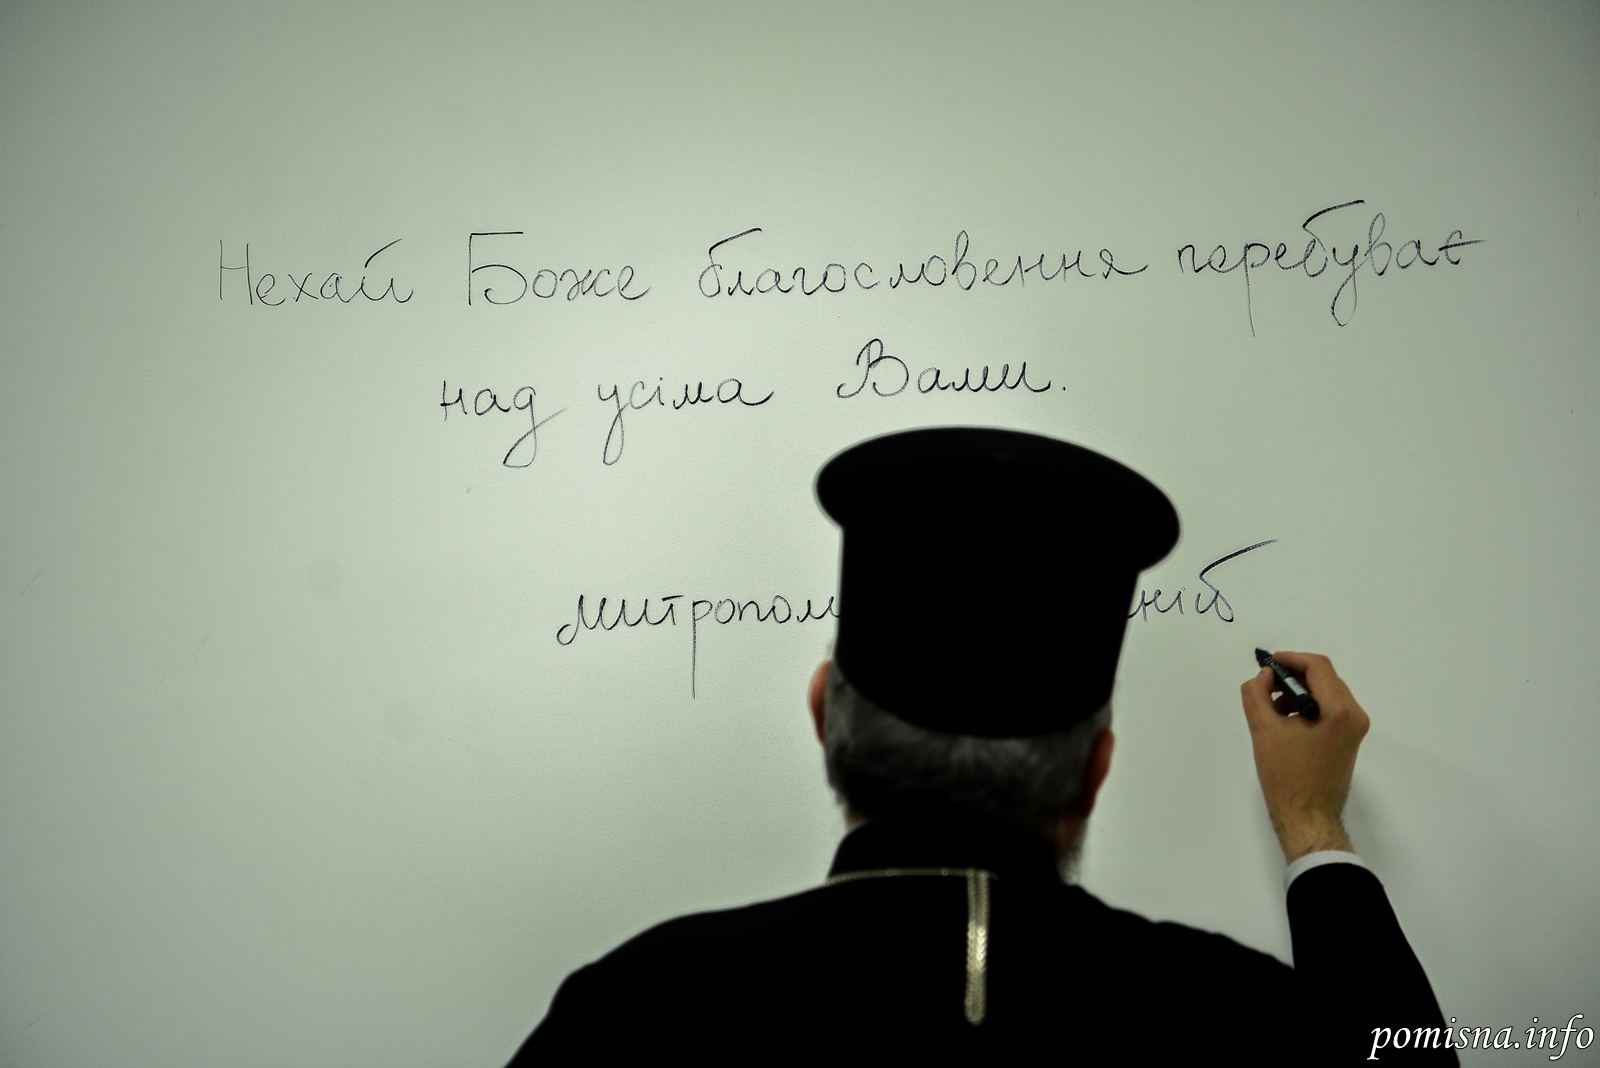 Нехай Боже благословення перебуває
над усіма Вами.
pomisna.info